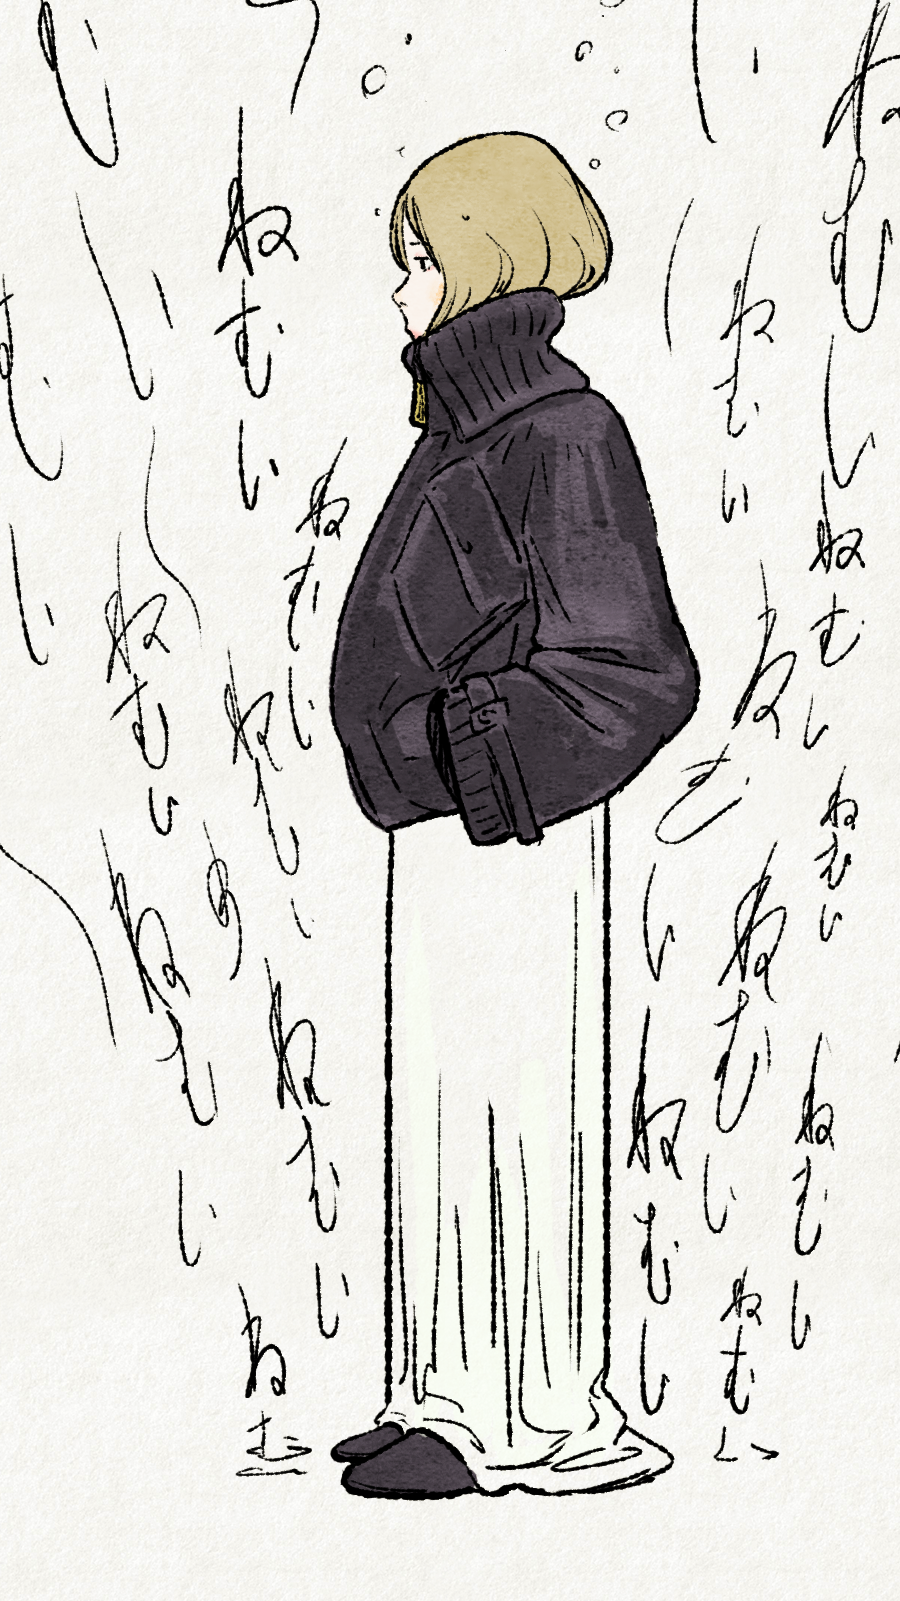 ねむい
ねむい
ねむい
ねむい
ねむい
ねむい
ねむい
ねむい
ねむい
ねむい
むい
い
ねむい
ねむい
ねむい
ねむ
ねむい
ねむい
い
むい